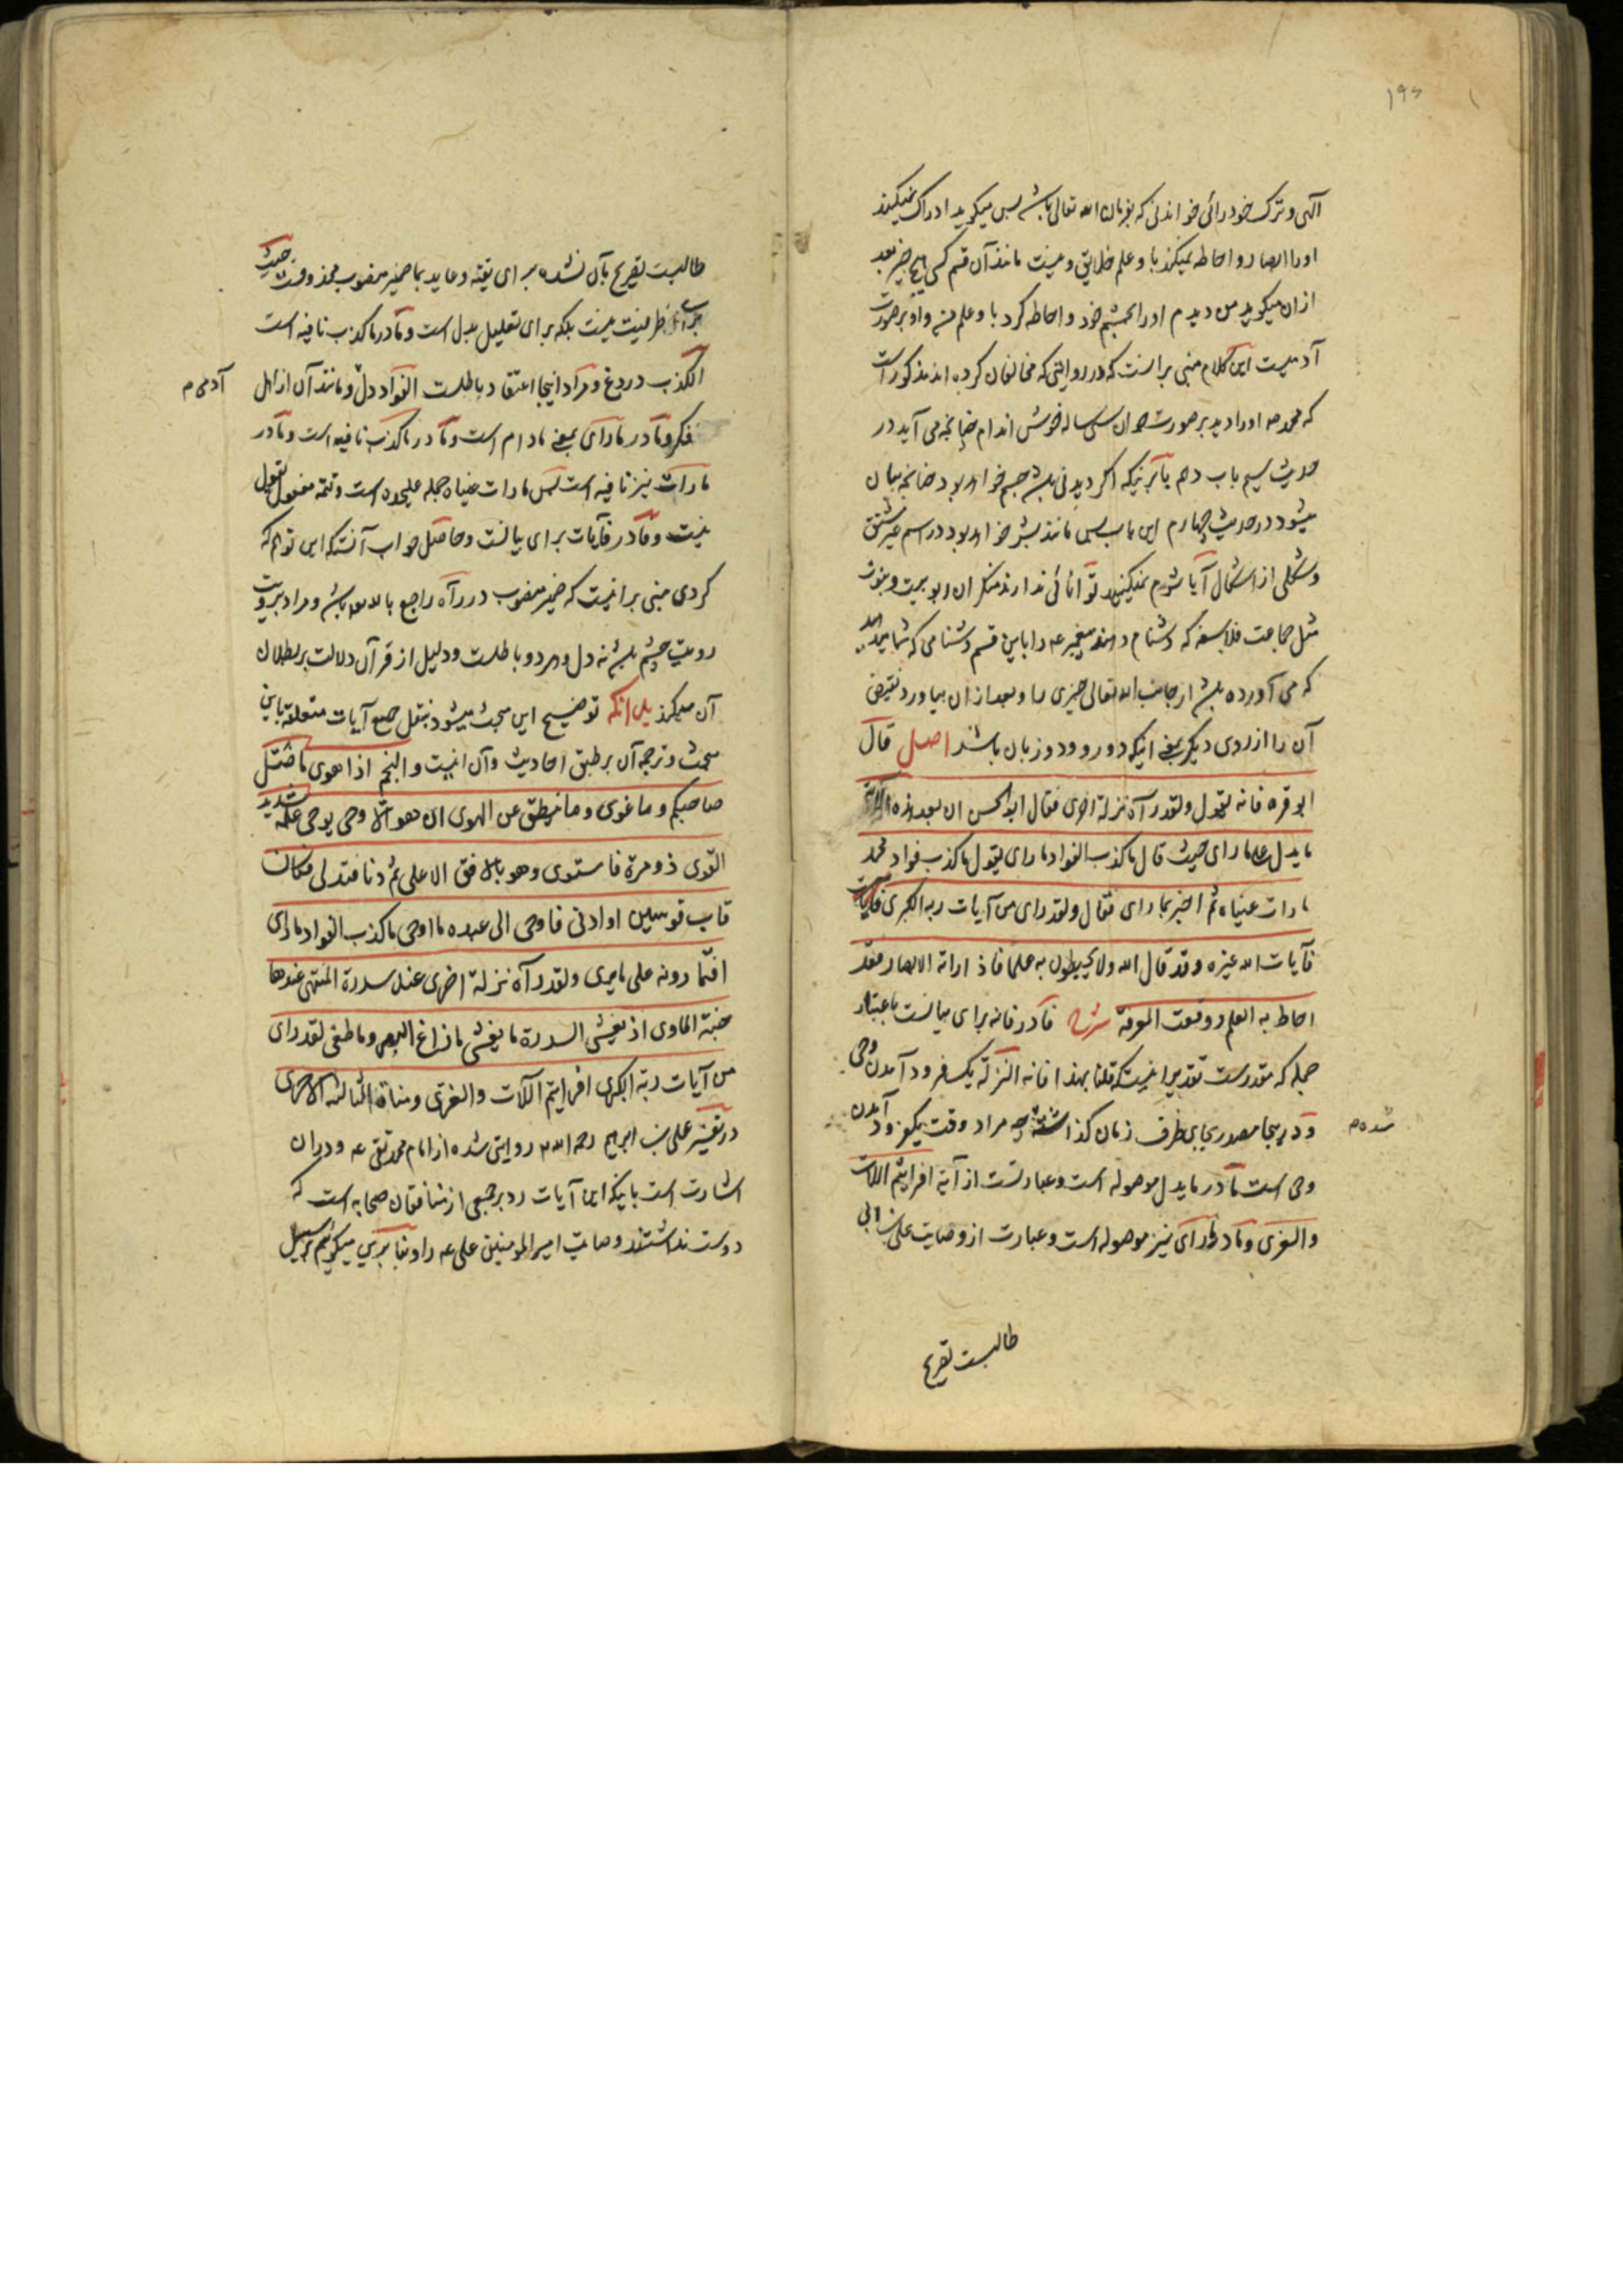 ۱۹۶
الهی و ترک خود رائی خواندنی که بفرمان الله تعالی باشد پس میگوید ادراک نمیکند
او را ابصار و احاطه نمیکند با و علم خلایق و نیست مانند آن قسم کسی هیچ چیز بعد
ازان میگوید من دیدم او را بچشم خود و احاطه کردم با و علم من و او بر صورت
آدمیست این کلام مبنی بر انست که در روایتی که مخالفان کرده اند مذکور است
که محمد صه او را دید بر صورت جوان سی ساله خوش اندام چنانچه می آید در
حدیث سیم باب دهم یا بر اینکه اگر دیدنی باشد جسم خواهد بود چنانچه بیان
میشود در حدیث چهارم این باب پس مانند بشر خواهد بود در اسم غیر مشتق
و شکلی از اشکال آیا شرم نمیکنید توانائی ندارند منکران ربوبیت و نبوت
مثل جماعت فلاسفه که دشنام دهند پیغمبر عه را باین قسم دشنامی که شما میدهید
که می آورده باشد از جانب الله تعالی چیزی را و بعد از ان بیاورد نقیض
آن را از روی دیگر یعنی اینکه دو رو و دو زبان باشد اصل قال
ابو قره فانه یقول ولقد رآه نزلة اخری فقال ابو الحسن ان بعد هذه الآیة
ما یدل علی ما رای حیث قال ما کذب الفواد ما رای یقول ما کذب فواد محمد
ما رات عیناه ثم اخبر بما رای فقال ولقد رای من آیات ربه الکبری
فآیات الله غیره وقد قال الله ولا یحیطون به علما فاذا راته الابصار فقد
احاط به العلم ووقعت المعرفة شرح فا در فانه برای بیانست باعتبار
جمله که مقدرست تقدیر اینست که قلنا بهذا فانه النزلة یکسفر فرود آمدن وحی
و در اینجا مصدر بجای ظرف زمان گذاشته چه مراد وقت یکفرود آمدن
شده م
وحی است ما در ما یدل موصوله است و عبارتست از آیه افرایتم اللات
والعزی و ما در ما رای نیز موصوله است و عبارت از وصایت علی بن ابی
طالبست تصریح
طالبست تصریح بآن نشده برای تقیه و عاید بما ضمیر منصوب محذوفست حیث
برای ظرفیت نیست بلکه برای تعلیل یدل است و ما در ما کذب نافیه است
الکذب دروغ و مراد اینجا اعتقاد باطلست الفواد دل و مانند آن از اهل
آدمی م
فکر و ما در ما رای بمعنی مادام است و ما در ما کذب نافیه است و ما در
ما رات نیز نافیه است پس ما رات عیناه جمله علیحده است و تتمه مفعول یقول
نیست و فا در فآیات برای بیانست و حاصل جواب آنستکه این توهم که
کردی مبنی بر اینست که ضمیر منصوب در رآه راجع بالله باشد و مراد برویت
رویت چشم باشد نه دل و هر دو باطلست و دلیل از قرآن دلالت بر بطلان
آن میکند بدانکه توضیح این مبحث میشود بنقل جمیع آیات متعلقه باین
مبحث و ترجمه آن بر طبق احادیث و آن اینست والنجم اذا هوی ما ضل
صاحبکم وما غوی وما ینطق عن الهوی ان هو الا وحی یوحی علمه شدید
القوی ذو مرة فاستوی وهو بالافق الاعلی ثم دنا فتدلی فکان
قاب قوسین او ادنی فاوحی الی عبده ما اوحی ما کذب الفواد ما رای
افتمارونه علی ما یری ولقد رآه نزلة اخری عند سدرة المنتهی عندها
جنة الماوی اذ یغشی السدرة ما یغشی ما زاغ البصر وما طغی لقد رای
من آیات ربه الکبری افرایتم اللات والعزی ومناة الثالثة الاخری
در تفسیر علی بن ابرهیم رحمه الله روایتی شده از امام محمد تقی عه و در ان
اشارت است باینکه این آیات رد بر جمعی از منافقان صحابه است که
دوست نداشتند وصایت امیر المومنین علی عه را و بنا برین میگوئیم بر سبیل